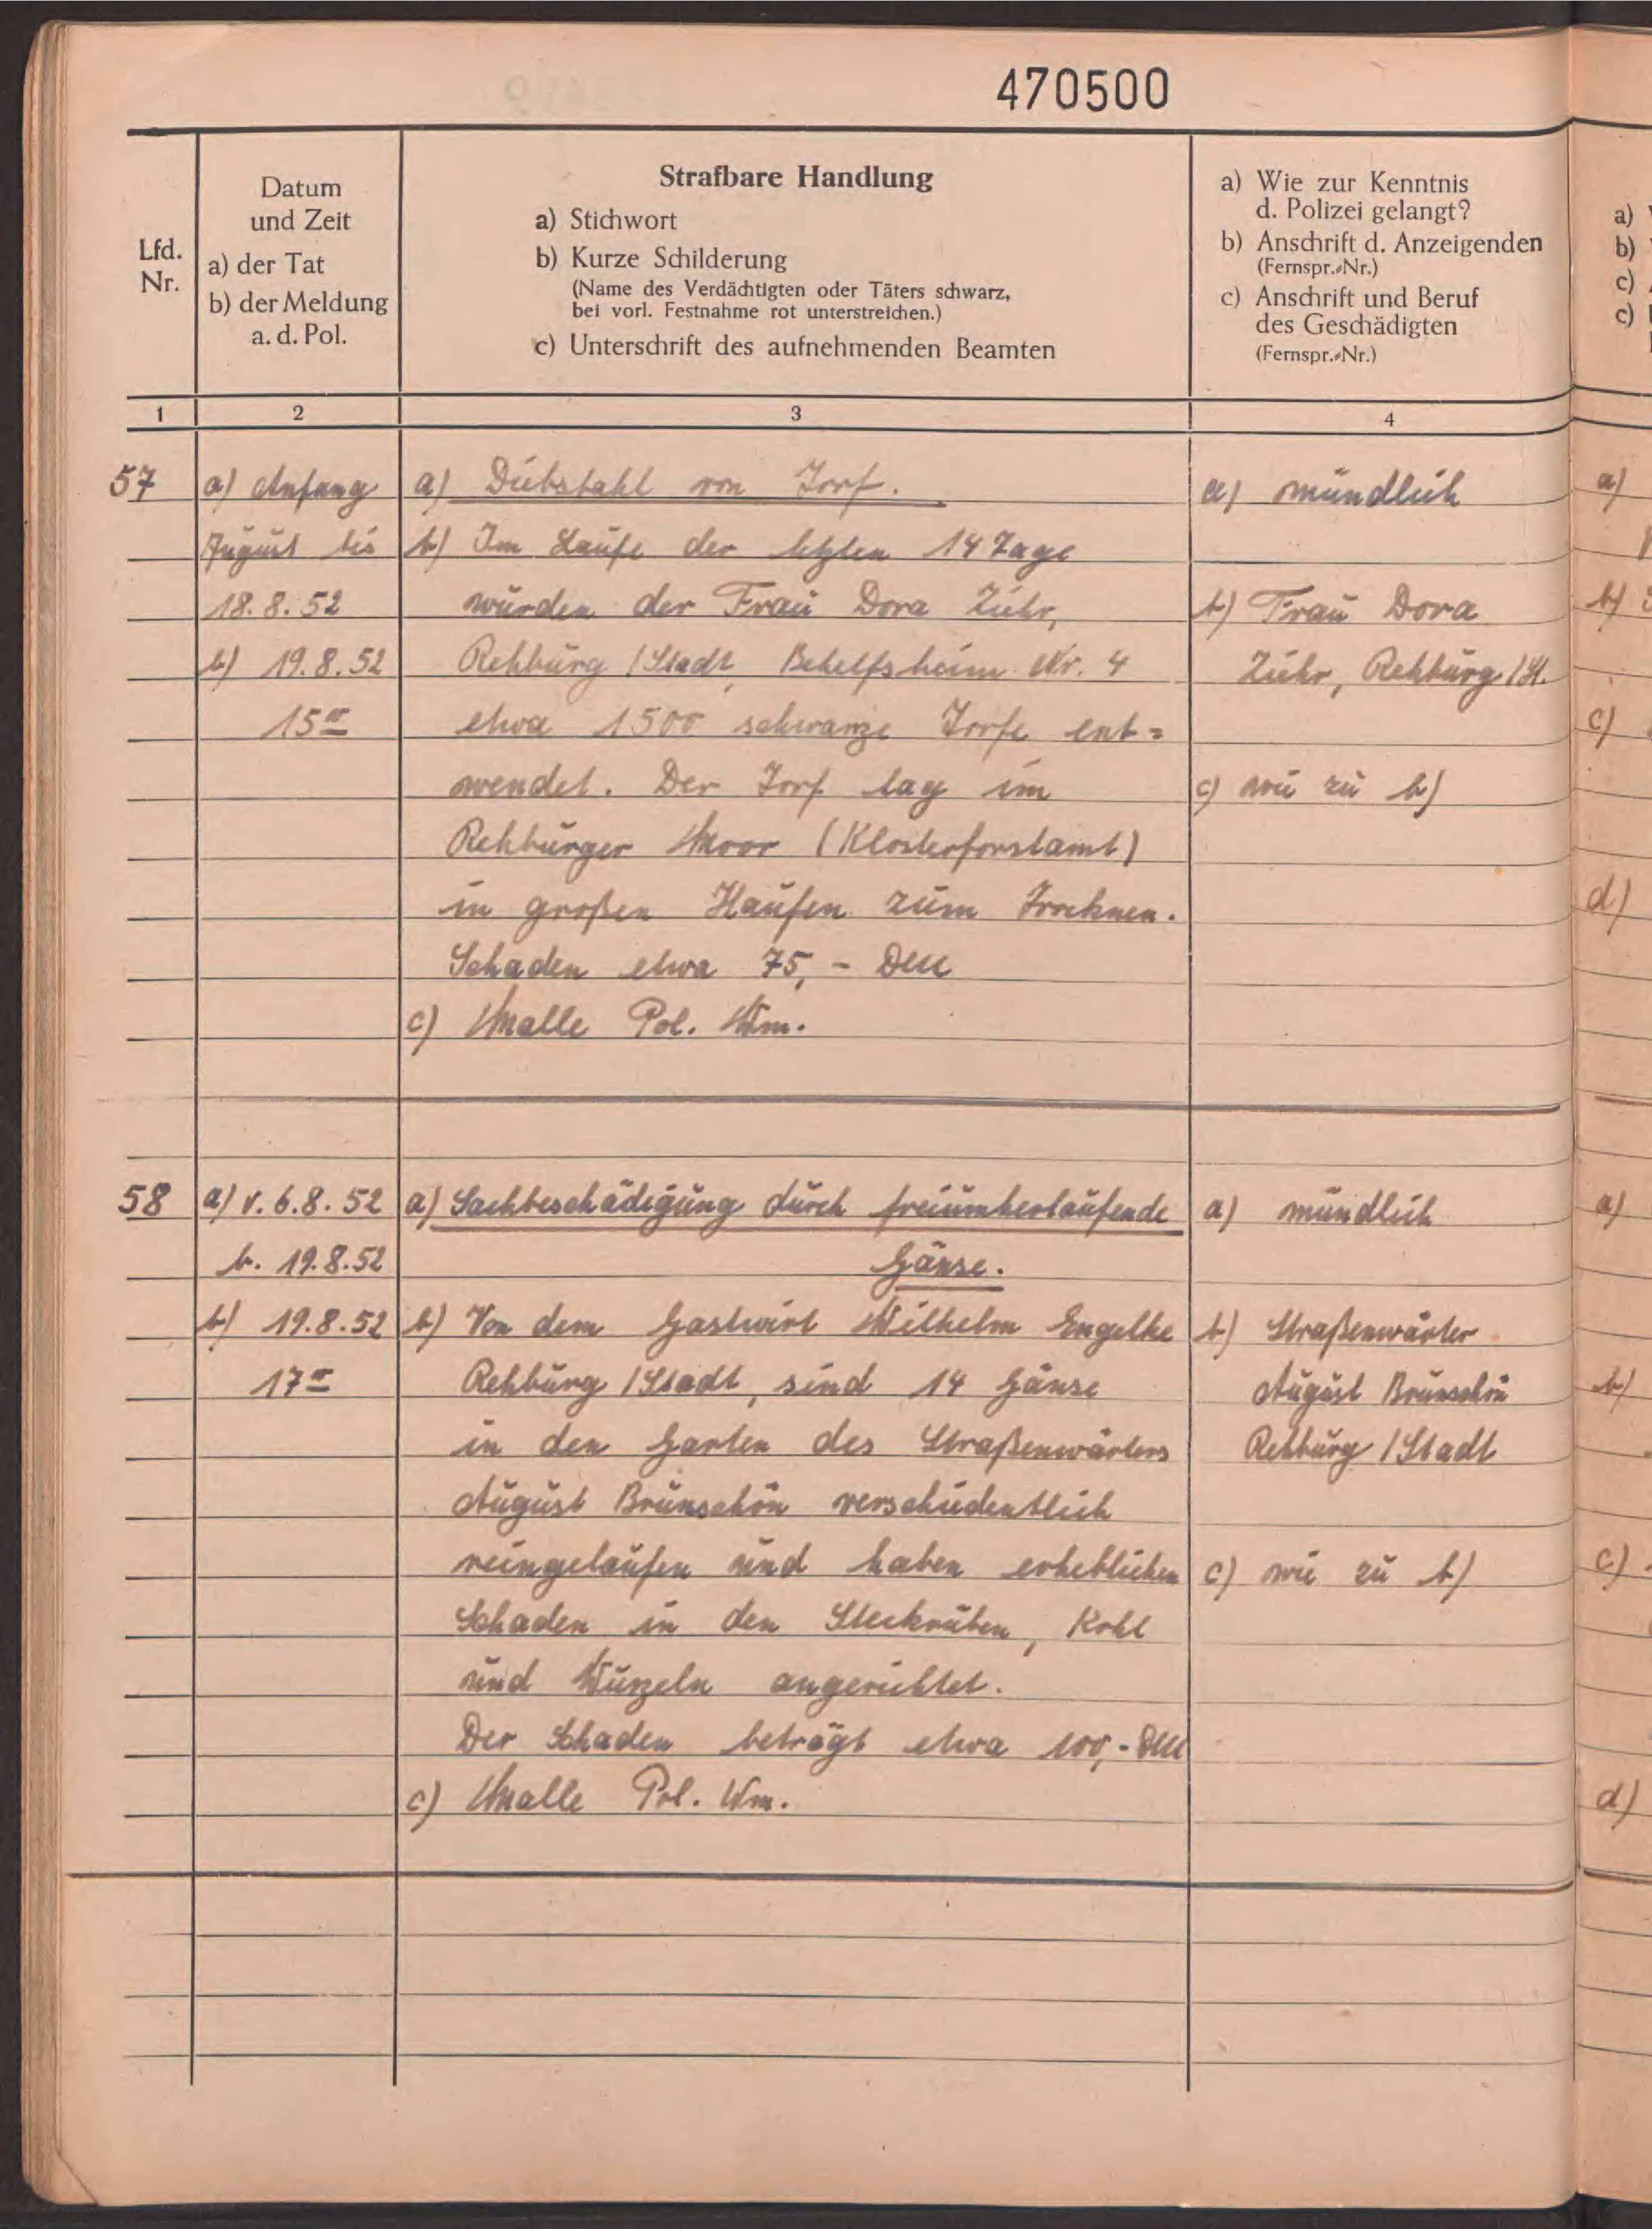 470500
Lfd.
Nr.
Datum
und Zeit
a) der Tat
b) der Meldung
a. d. Pol.
Strafbare Handlung
a) Stichwort
b) Kurze Schilderung
(Name des Verdächtigten oder Täters schwarz,
bei vorl. Festnahme rot unterstreichen.)
c) Unterschrift des aufnehmenden Beamten
a) Wie zur Kenntnis
d. Polizei gelangt?
b) Anschrift d. Anzeigenden
(Fernspr.-Nr.)
c) Anschrift und Beruf
des Geschädigten
(Fernspr.-Nr.)
1
2
3
4
57
a) Anfang
August bis
18. 8. 52
b) 19. 8. 52
15⁰⁰
a) Diebstahl von Torf.
b) Im Laufe der letzten 14 Tage
wurden der Frau Dora Ziehr,
Rehburg / Stadt, Behelfsheim Nr. 4
etwa 1500 schwarze Torfe ent=
wendet. Der Torf lag im
Rehburger Moor (Klosterforstamt)
in großen Haufen zum Trocknen.
Schaden etwa 75,- DM
c) Malle Pol. Wm.
a) mündlich
b) Frau Dora
Ziehr, Rehburg / St.
c) wie zu b)
58
a) v. 6. 8. 52
b. 19. 8. 52
b) 19. 8. 52
17⁰⁰
a) Sachbeschädigung durch freiumherlaufende
Gänse.
b) Von dem Gastwirt Wilhelm Engelke
Rehburg / Stadt, sind 14 Gänse
in den Garten des Straßenwärters
August Brunschön verschiedentlich
reingelaufen und haben erheblichen
Schaden in den Steckrüben, Kohl
und Wurzeln angerichtet.
Der Schaden beträgt etwa 100,- DM
c) Malle Pol. Wm.
a) mündlich
b) Straßenwärter
August Brunschön
Rehburg / Stadt
c) wie zu b)
a)
b)
c)
c)
a)
b)
c)
d)
a)
b)
c)
d)